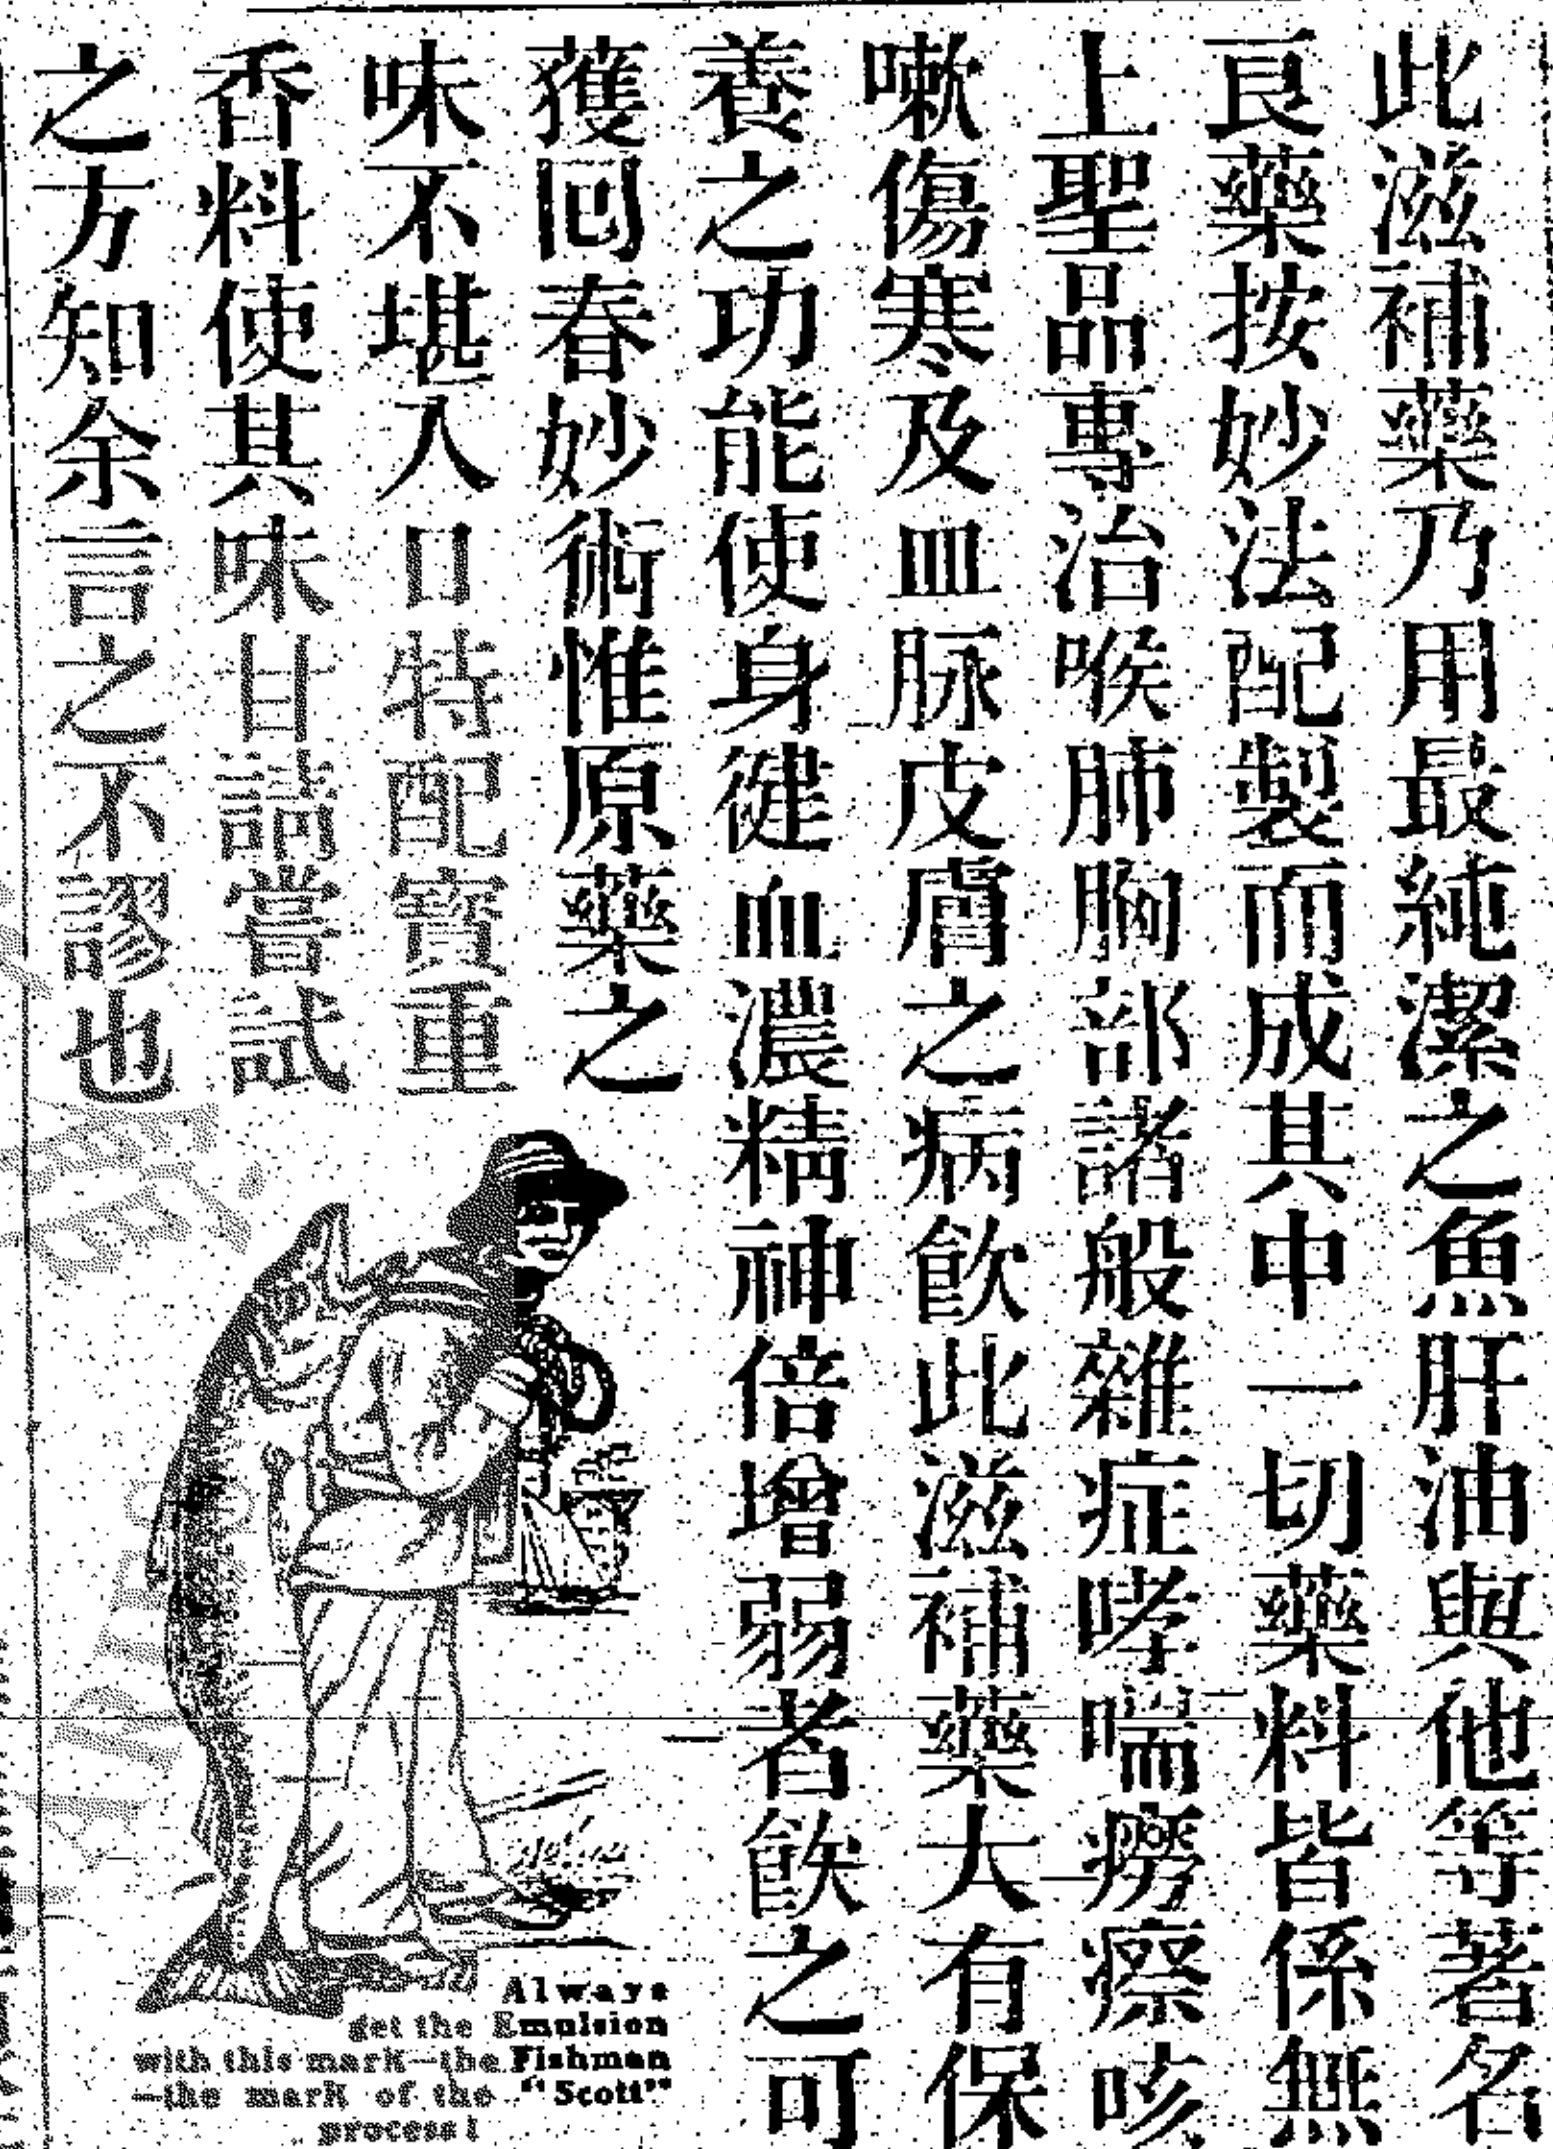 此滋補藥乃用最純潔之魚肝油與他等著名
良藥按妙法配製而成其中一切藥料皆係無
上聖品專治喉肺胸部諸般雜症哮喘癆瘵咳
嗽傷寒及血脉皮膚之病飲此滋補藥大有保
養之功能使身健血濃精神倍增弱者飲之可
獲回春妙術惟原藥之
味不堪入口特配寳重
香料使其味甘請嘗試
之方知余言之不謬也
Always
get the Emulsion
with this mark—the Fishman
—the mark of the "Scott"
process!